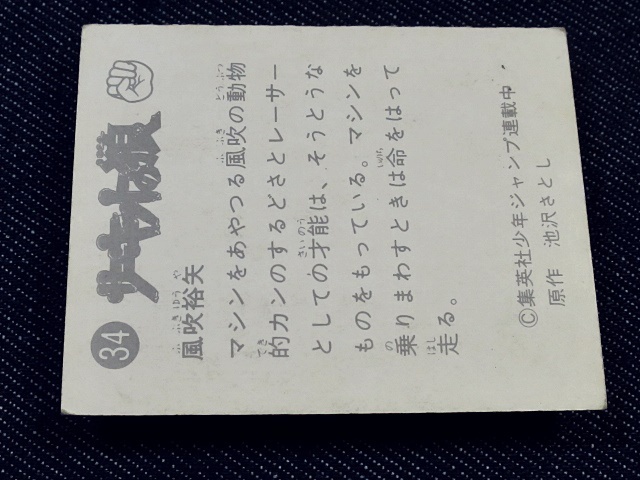 34 サーキットの狼
風吹裕矢
マシンをあやつる風吹の動物
的カンのするどさとレーサー
としての才能は、そうとうな
ものをもっている。マシンを
乗りまわすときは命をはって
走る。
©集英社少年ジャンプ連載中
原作 池沢さとし